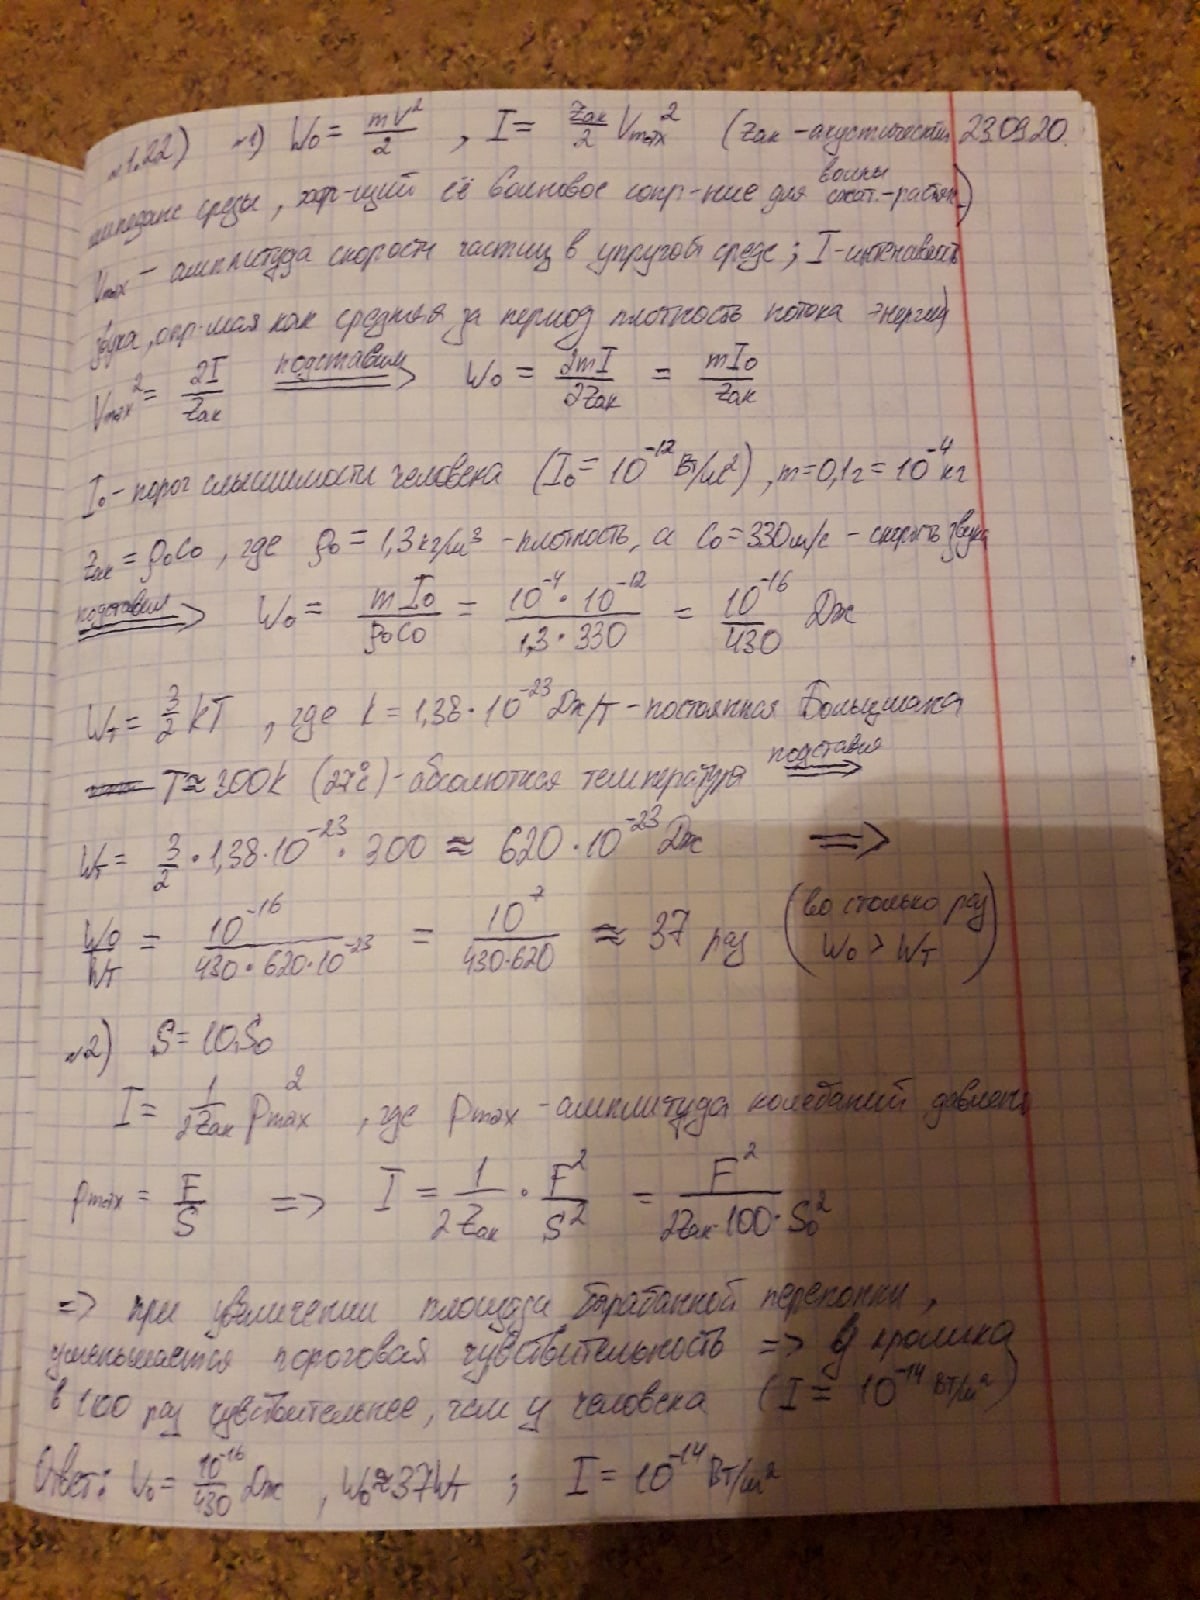 №1.22) №1) W₀ = mV²/2 , I = Zак/2 Vmax² (Zак - акустический 23.09.20.
импеданс среды, хар-щий её волновое сопр-ние для волны сжат.-растяж.)
Vmax - амплитуда скорости частиц в упругой среде; I - интенсивность
звука, опр-мая как средняя за период плотность потока энергии)
Vmax² = 2I/Zак подставим => W₀ = 2mI/2Zак = mI₀/Zак
I₀ - порог слышимости человека (I₀ = 10⁻¹² Вт/м²), m = 0,1г = 10⁻⁴ кг
Zак = ρ₀c₀ , где ρ₀ = 1,3 кг/м³ - плотность, а c₀ = 330 м/с - скорость звука
подставим => W₀ = mI₀/ρ₀c₀ = 10⁻⁴ · 10⁻¹²/1,3 · 330 = 10⁻¹⁶/430 Дж
Wт = 3/2 kT , где k = 1,38 · 10⁻²³ Дж/Т - постоянная Больцмана
T ≈ 300k (27°c) - абсолютная температура подставим =>
Wт = 3/2 · 1,38 · 10⁻²³ · 300 ≈ 620 · 10⁻²³ Дж =>
W₀/Wт = 10⁻¹⁶/430 · 620 · 10⁻²³ = 10⁷/430·620 ≈ 37 раз (во столько раз W₀ > Wт)
№2) S = 10S₀
I = 1/2Zак pmax² , где pmax - амплитуда колебаний давления
pmax = F/S => I = 1/2Zак · F²/S² = F²/2Zак·100·S₀²
=> при увеличении площади барабанной перепонки,
уменьшается пороговая чувствительность => у кролика
в 100 раз чувствительнее, чем у человека (I = 10⁻¹⁴ Вт/м²)
Ответ: W₀ = 10⁻¹⁶/430 Дж , W₀ ≈ 37Wт ; I = 10⁻¹⁴ Вт/м²